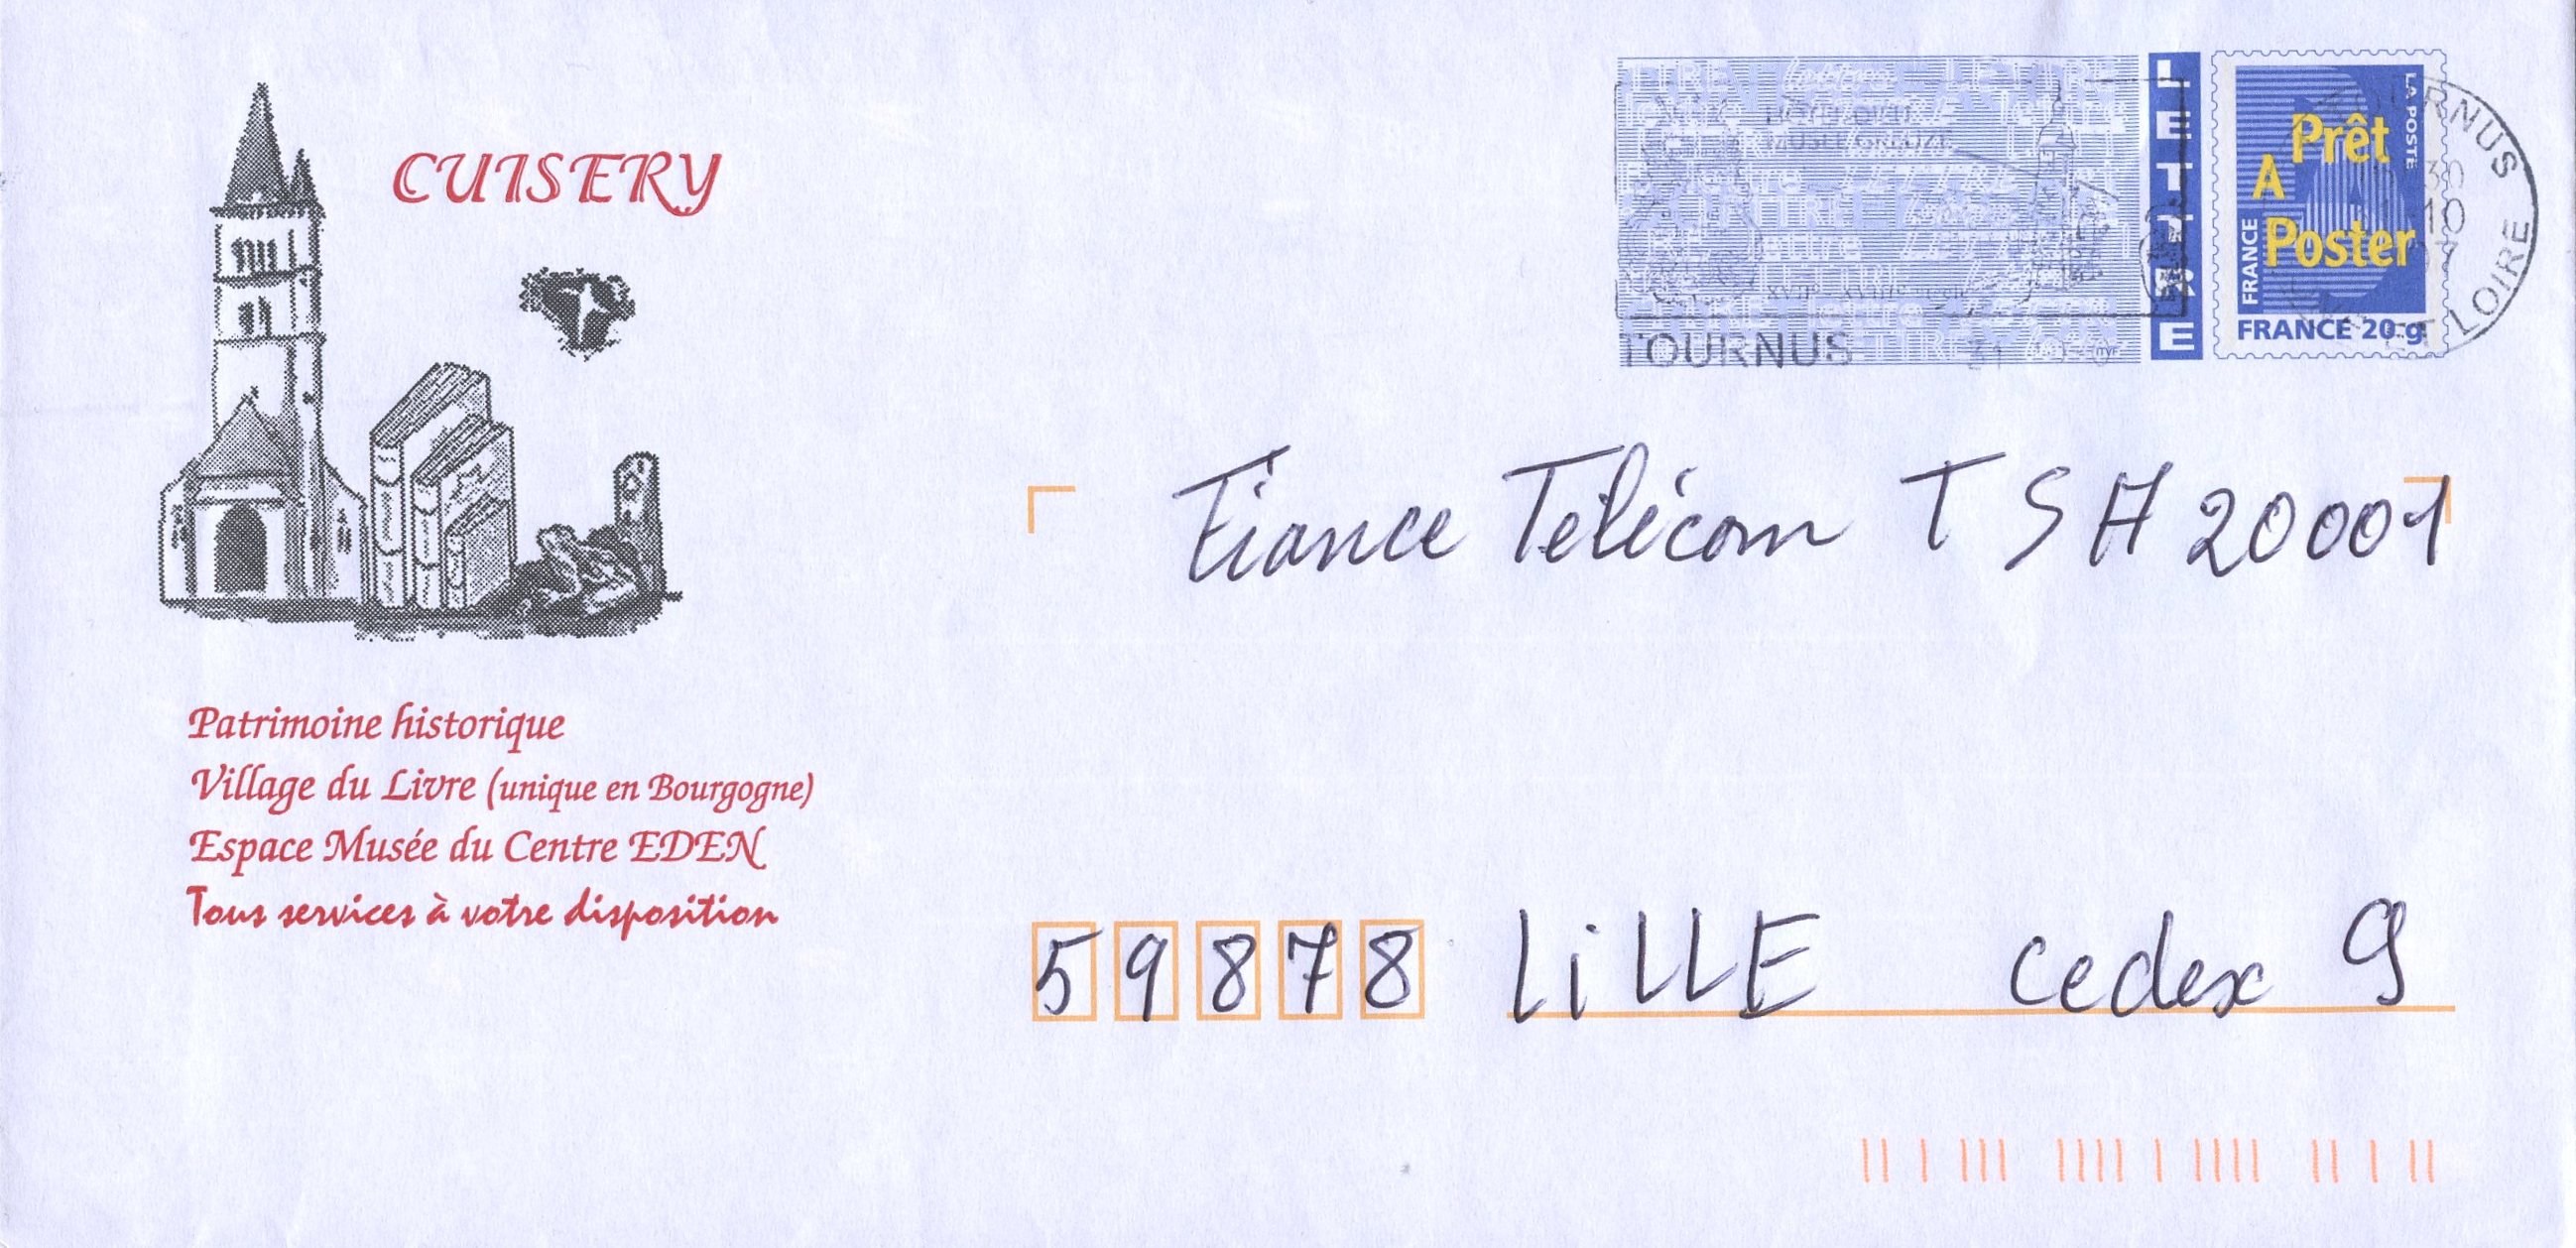 CUISERY
LETTRE
LA POSTE
Prêt
A
Poster
FRANCE
FRANCE 20 g
TOURNUS
LOIRE
France Télécom TSA 20001
Patrimoine historique
Village du Livre (unique en Bourgogne)
Espace Musée du Centre EDEN
Tous services à votre disposition
59878 LiLLE cedex 9